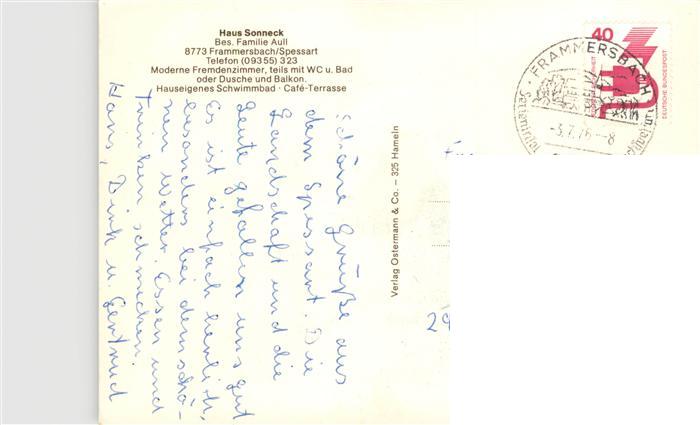 Haus Sonneck
Bes. Familie Aull
8773 Frammersbach/Spessart
Telefon (09355) 323
Moderne Fremdenzimmer, teils mit WC u. Bad
oder Dusche und Balkon.
Hauseigenes Schwimmbad · Café-Terrasse
Schöne Grüße aus
dem Spessart. Die
Landschaft und die
Leute gefallen uns gut
Es ist einfach herrlich,
besonders bei dem schö-
nen Wetter. Essen und
Trinken schmecken.
Hans, u. Gertrud
Verlag Ostermann & Co. – 325 Hameln
40
DEUTSCHE BUNDESPOST
FRAMMERSBACH
-5.7.76-8
29